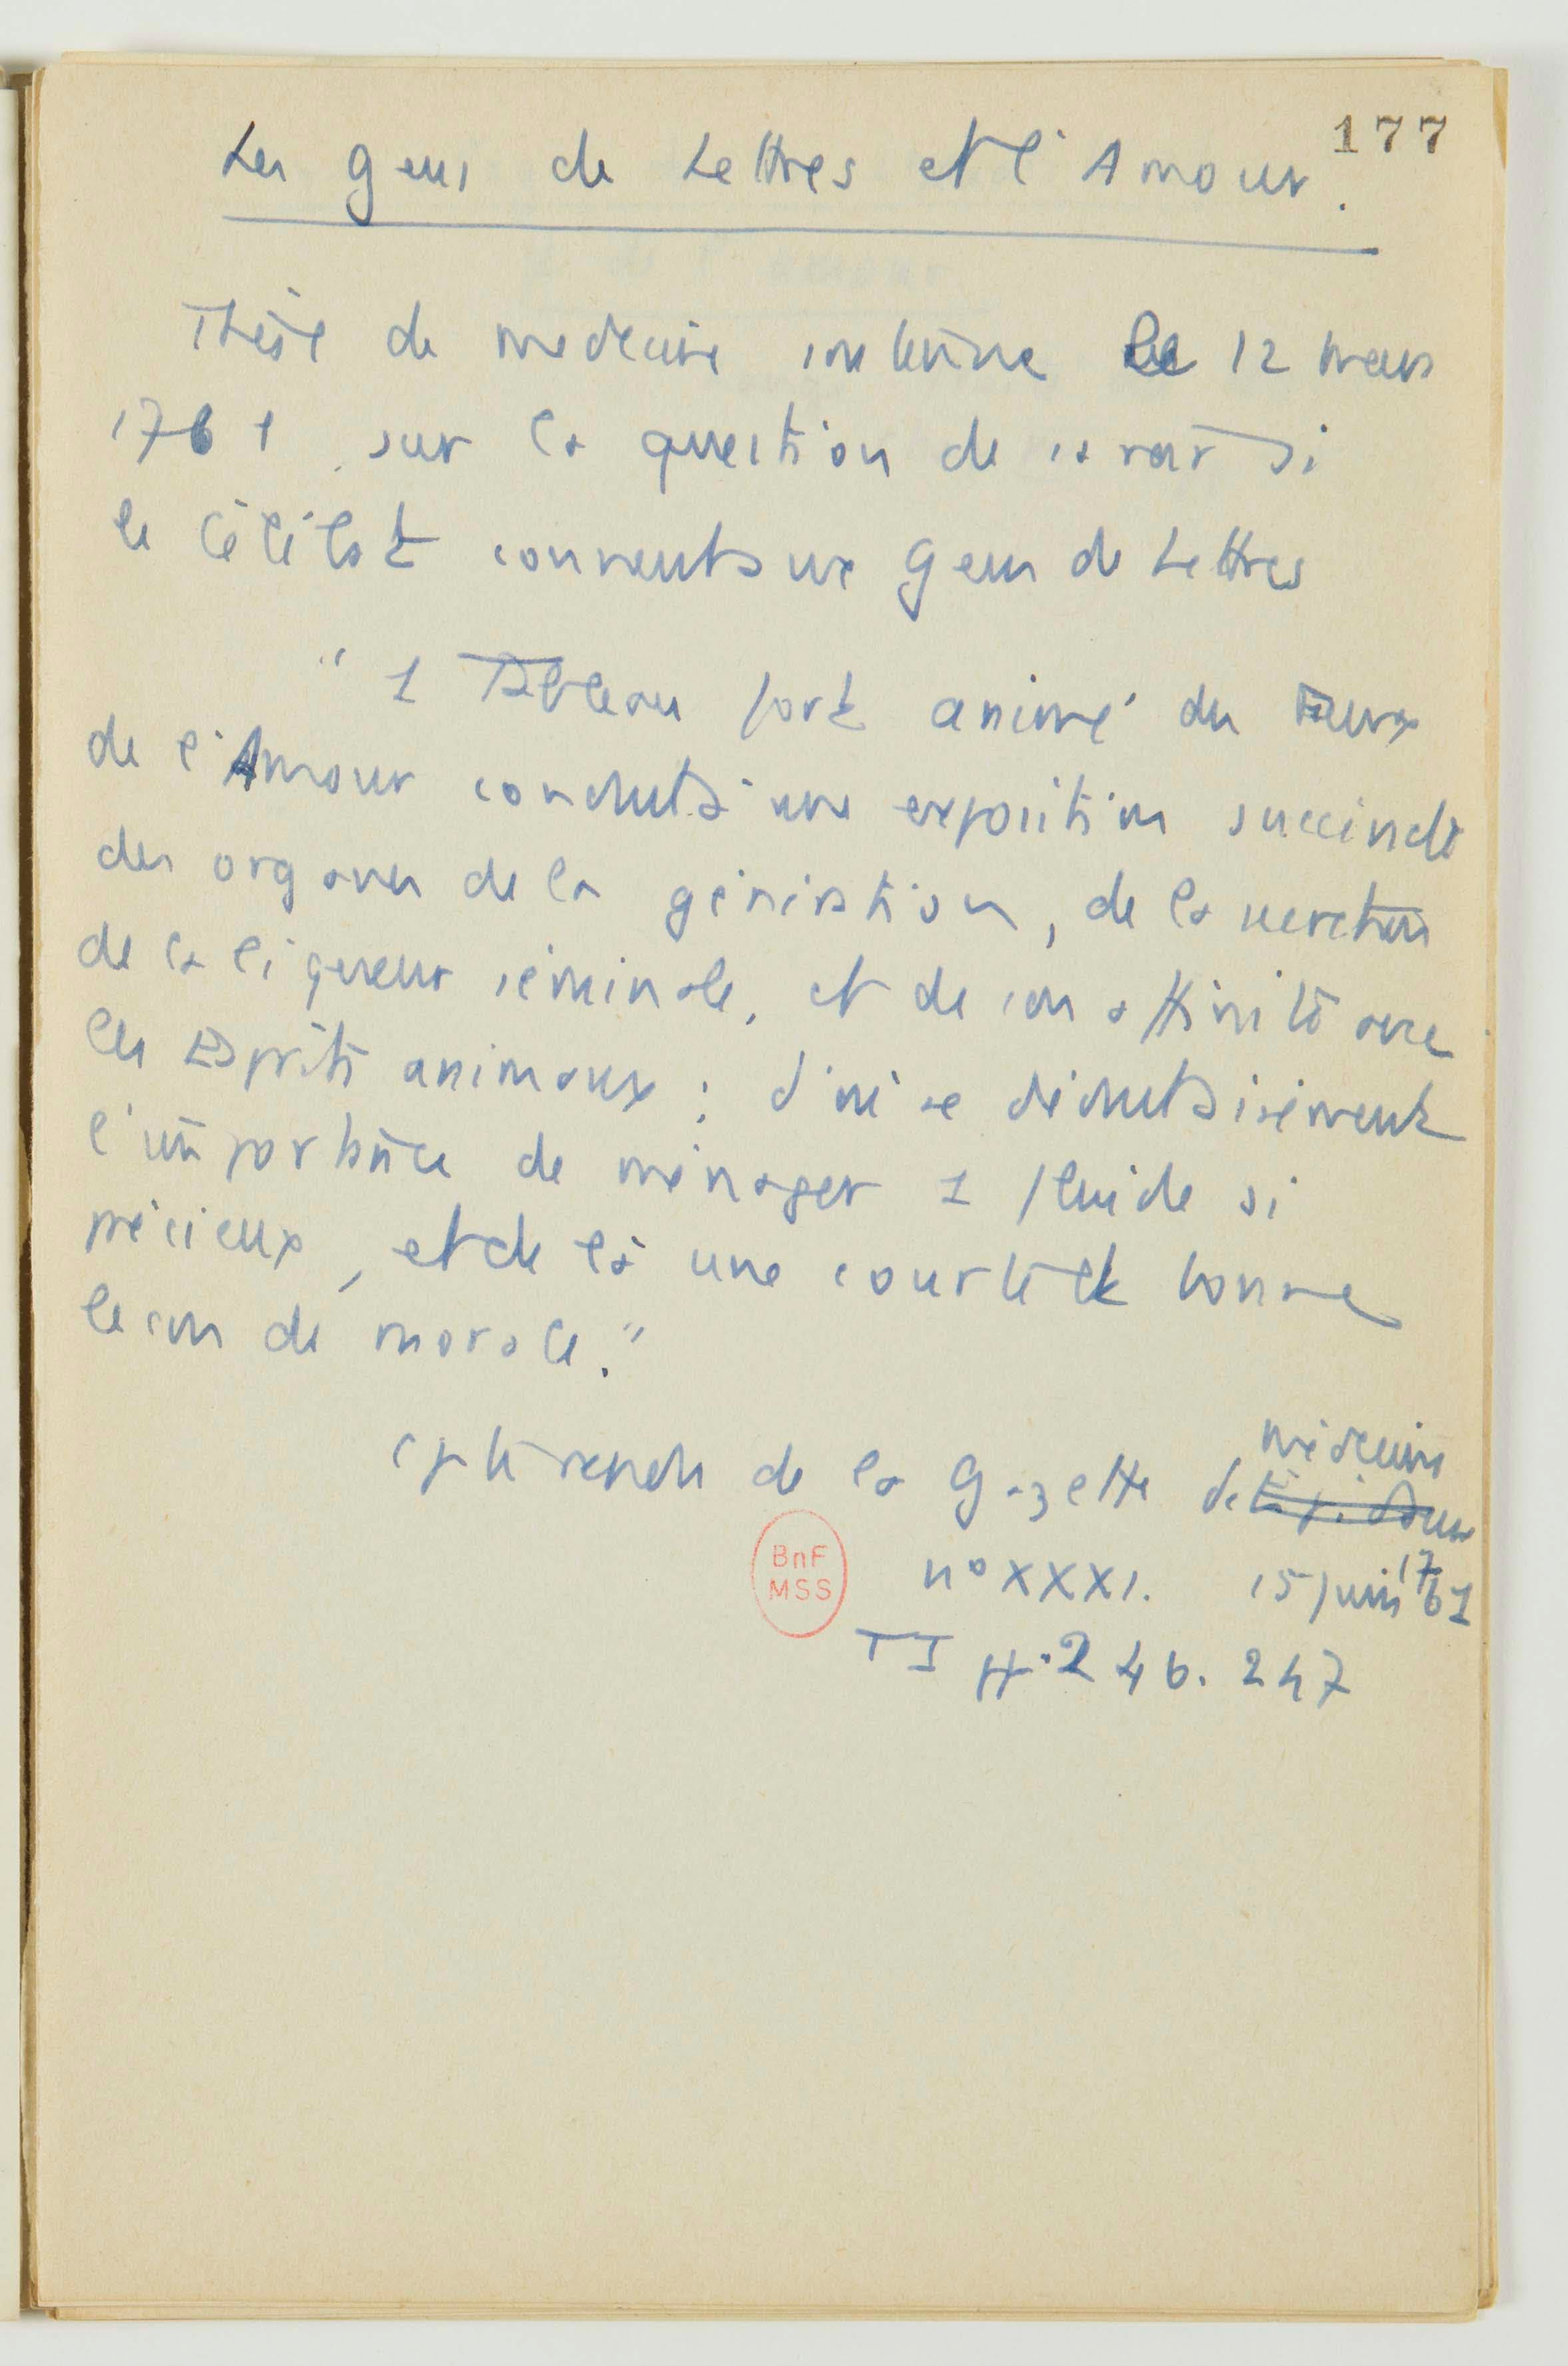 177
Les gens de Lettres et l'Amour.
Thèse de medecine soutenue le 12 mars
1761 sur la question de savoir si
le célibat convient aux gens de Lettres
" 1 Tableau fort animé du Feux
de l'Amour conduit à une exposition succincte
des organes de la génération, de la secretion
de la liqueur séminale, et de son affinité avec
les Esprits animaux ; d'où se déduit aisément
l'importance de ménager 1 fluide si
précieux, et de là une courte et bonne
leçon de morale."
Cpte rendu de la Gazette de médecine
BnF
MSS
n° XXXI. 15 juin 1761
T I pp. 246. 247